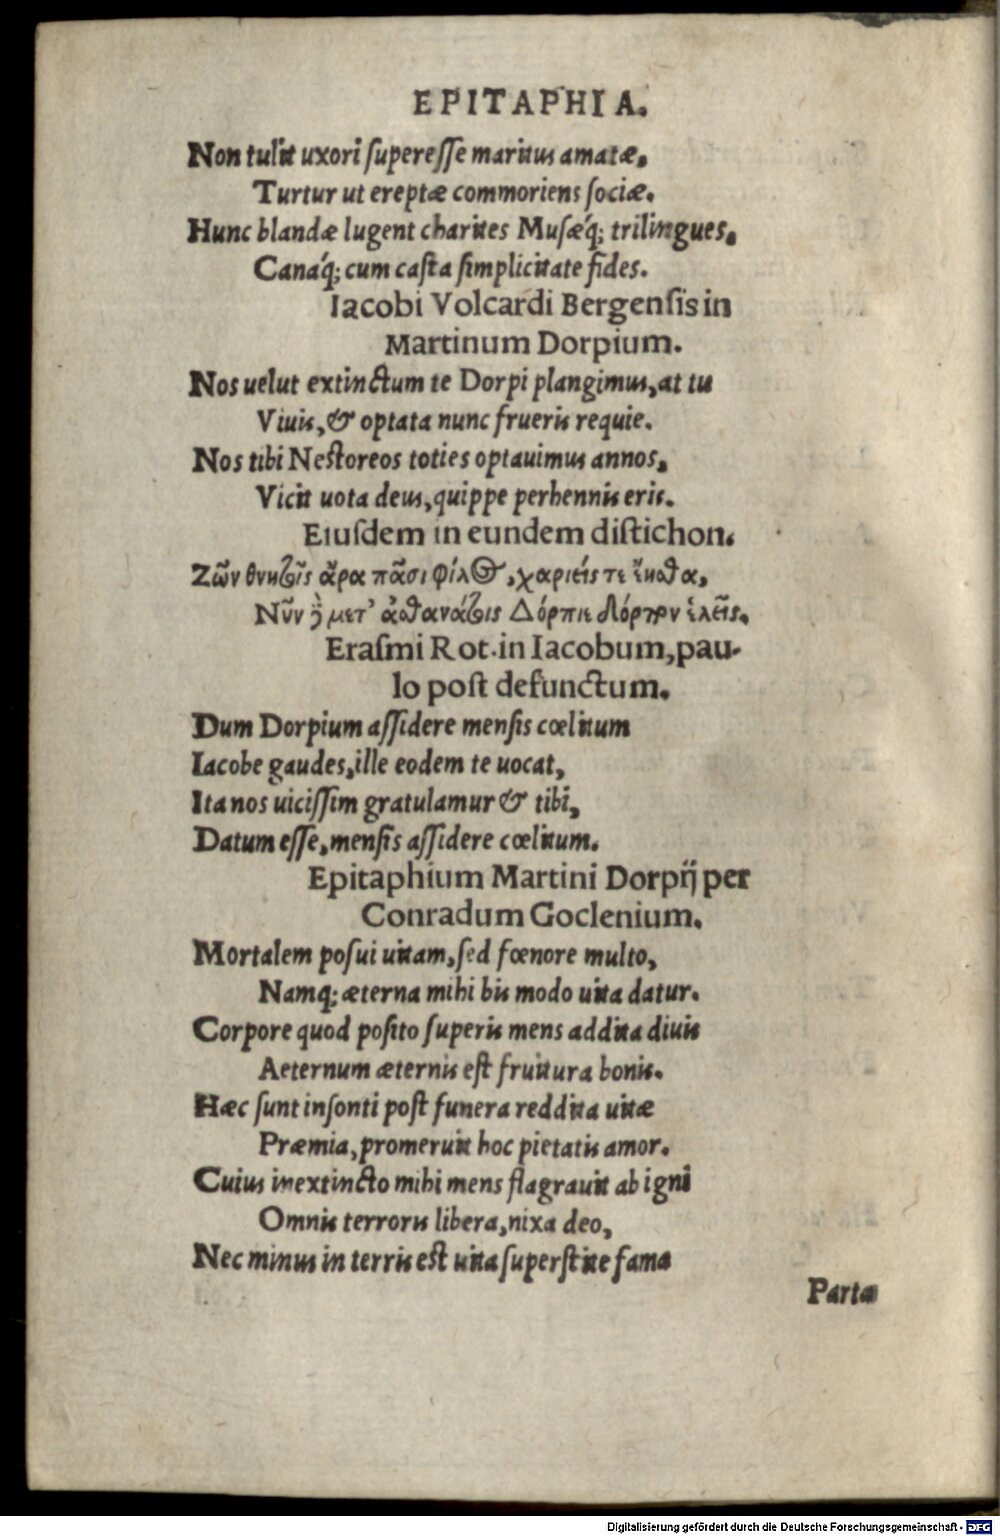 EPITAPHIA.
Non tulit uxori ſupereſſe maritus amatæ,
Turtur ut ereptæ commoriens ſociæ.
Hunc blandæ lugent charites Muſæq́; trilingues,
Canaq́; cum caſta ſimplicitate fides.
Iacobi Volcardi Bergenſis in
Martinum Dorpium.
Nos uelut extinctum te Dorpi plangimus, at tu
Viuis, & optata nunc frueris requie.
Nos tibi Neſtoreos toties optauimus annos,
Vicit uota deus, quippe perhennis eris.
Eiuſdem in eundem diſtichon.
Ζῶν θνητοῖς ἄρα πᾶσι φίλος, χαρίεις τε
Νῦν μετ' ἀθανάτοις Δόρπιε δόρπον
Eraſmi Rot. in Iacobum, pau-
lo poſt defunctum.
Dum Dorpium aſſidere menſis cœlitum
Iacobe gaudes, ille eodem te uocat,
Ita nos uiciſſim gratulamur & tibi,
Datum eſſe, menſis aſſidere cœlitum.
Epitaphium Martini Dorpij per
Conradum Goclenium.
Mortalem poſui uitam, ſed fœnore multo,
Namq; æterna mihi bis modo uita datur.
Corpore quod poſito ſuperis mens addita diuis
Aeternum æternis eſt fruitura bonis.
Hæc ſunt inſonti poſt funera reddita uitæ
Præmia, promeruit hoc pietatis amor.
Cuius inextincto mihi mens flagrauit ab igni
Omnis terroris libera, nixa deo,
Nec minus in terris eſt uita ſuperſtite fama
Parta
Digitalisierung gefördert durch die Deutsche Forschungsgemeinschaft - DFG